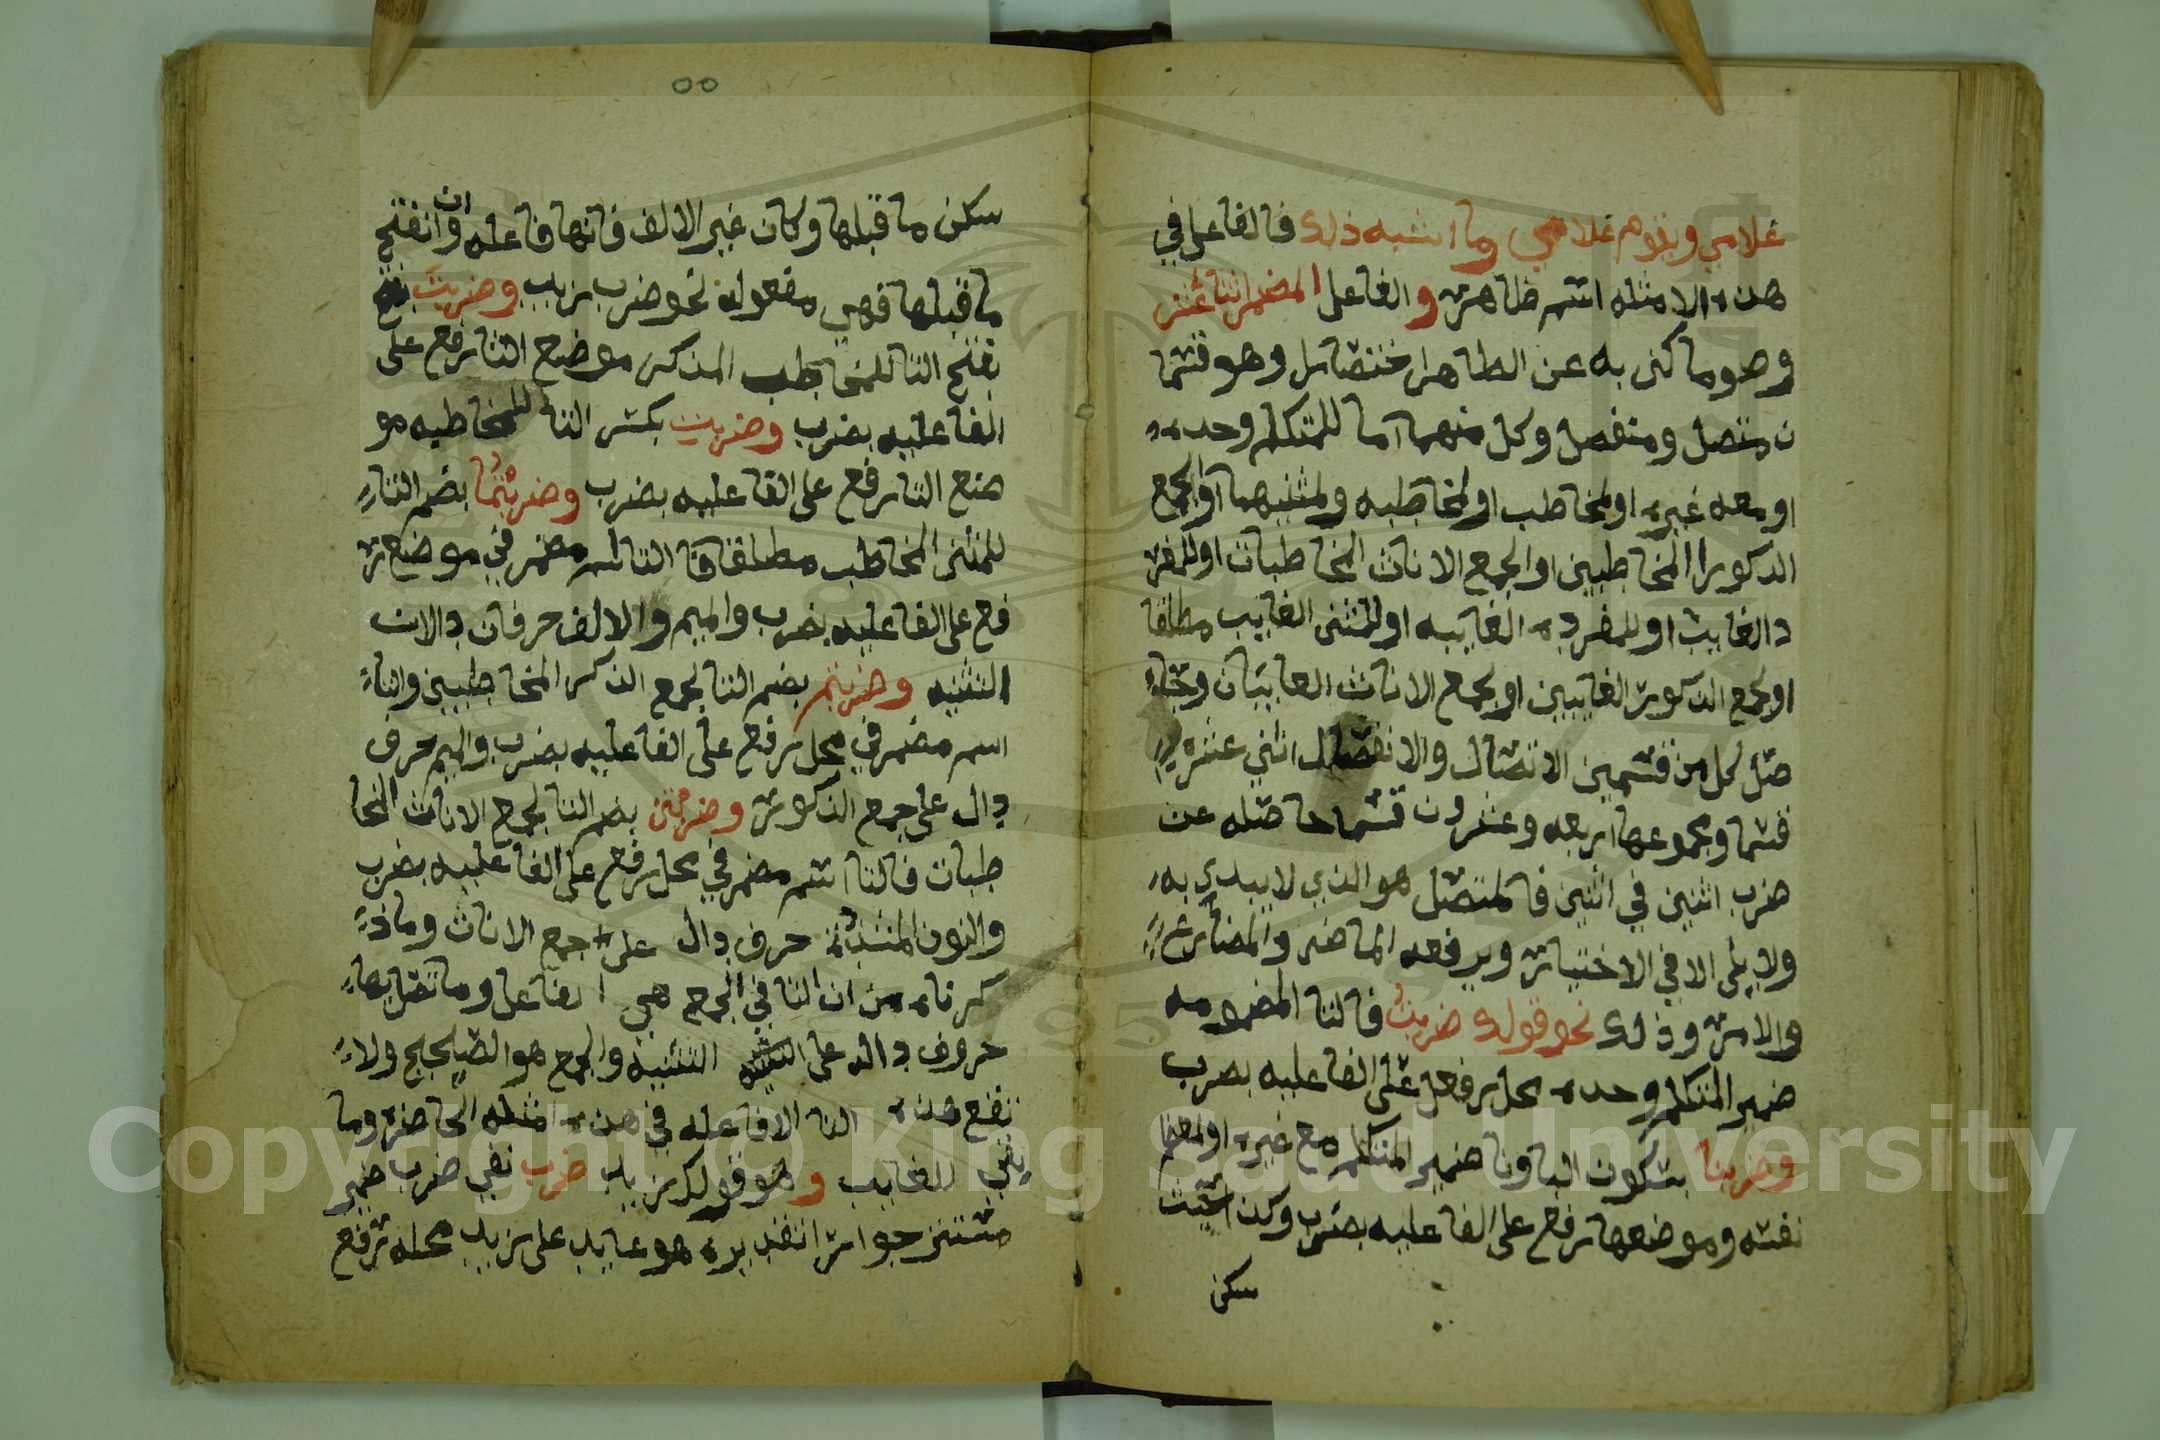 غلامي ويقوم غلامي وما اشبه ذلك فالفاعل في
هذه الامثله اسم ظاهر والفاعل المضمر اثنا عشر
وهو ما كني به عن الظاهر اختصارا وهو قسما
ن متصل ومنفصل وكل منهما اما للمتكلم وحده
او معه غيره او لمخاطب او لمخاطبه ولمثنيهما او لجمع
الذكور المخاطبين او لجمع الاناث المخاطبات او للمفر
د الغايب او للمفرده الغايبه او للمثنى الغايب مطلقا
او لجمع الذكور الغايبين او لجمع الاناث الغايبات
صل لكل من قسمين الاتصال والانفصال اثني عشر
قسما ومجموعها اربعه وعشرون قسما حاصله عن
ضرب اثنين في اثنين فالمتصل هو الذي لا يبدي به
ولا يلي الا في الاختيار ويرفعه الماضي والمضارع
والامر وذلك نحو قولك ضربت فالتا المضمومه
ضمير المتكلم وحده محل رفعل على الفاعليه بضرب
وضربنا بسكون البا ونا ضمير المتكلم مع غيره او المعظم
نفسه وموضعها رفع على الفاعليه بضرب
سكن
٥٥
سكن ما قبلها وكان غير الالف فانها فاعله وان انفتح
ما قبلها فهي مفعوله نحو ضرب زيد وضربت
بفتح التا للمخاطب المذكر موضع التا رفع على
الفاعليه بضرب وضربت بكسر التا للمخاطبه مو
ضع التا رفع على الفاعليه بضرب وضربتما بضم التاء
للمثنى المخاطب مطلقا فا التا اسم مضمر في موضع ر
فع على الفاعليه بضرب والميم والالف حرفان دالان
التثنيه وضربتم بضم التا لجمع الذكر المخاطبين والتاء
اسم مضمر في محل رفع على الفاعليه بضرب والميم حرف
دال على جمع الذكور وضربتن بضم التا لجمع الاناث المخا
طبات فالتا اسم مضمر في محل رفع على الفاعليه بضرب
والنون المشدده حرف دال على جمع الاناث وما ذ
كرناه من ان التا في الجمع هي الفاعل وما تصل بها
حروف داله على التثنيه والجمع هو الصحيح ولا
تقع هذه التا الا فاعله في هذه امثله الحاضره وما
بقي للغايب وهو قولك زيد ضرب نفي ضرب ضمير
مستتر جوازا تقديره هو عايد على زيد محله رفع